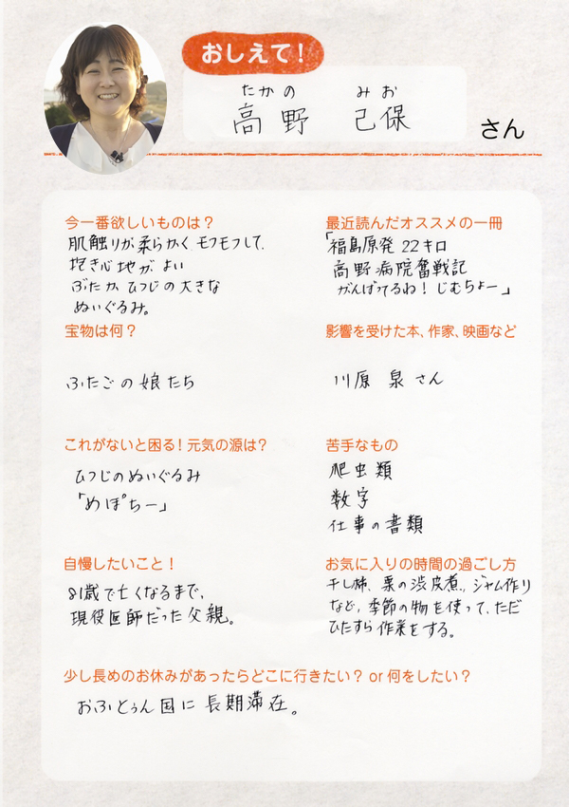 おしえて！
たかの みお
高野 己保 さん
今一番欲しいものは？
肌触りが柔らかく モフモフして、
抱き心地が よい
ぶたか、ひつじの大きな
ぬいぐるみ。
最近読んだオススメの一冊
「福島原発 22キロ
高野病院奮戦記
がんばってるね！じむちょー」
宝物は何？
ふたごの娘たち
影響を受けた本、作家、映画など
川原 泉さん
これがないと困る！元気の源は？
ひつじのぬいぐるみ
「めぽちー」
苦手なもの
爬虫類
数字
仕事の書類
自慢したいこと！
81歳で亡くなるまで、
現役医師だった父親。
お気に入りの時間の過ごし方
干し柿、栗の渋皮煮、ジャム作り
など、季節の物を使って、ただ
ひたすら作業をする。
少し長めのお休みがあったらどこに行きたい？ or 何をしたい？
おふとぅん国に長期滞在。